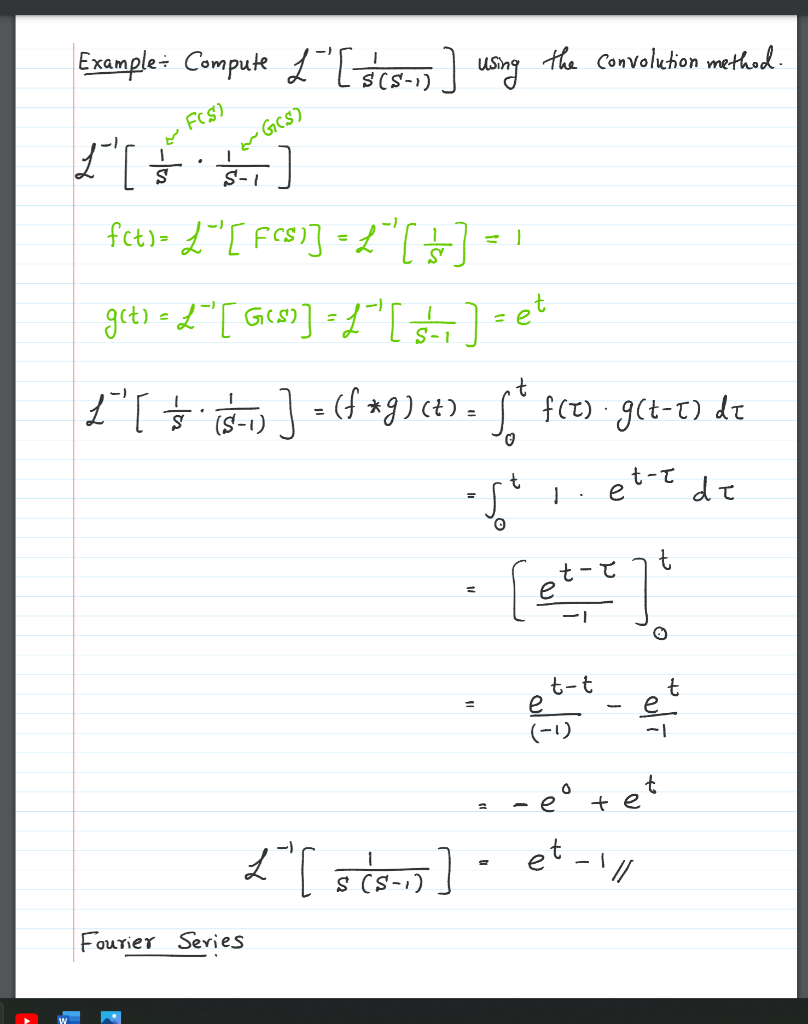 Example ÷ Compute ℒ⁻¹[1/(S(S-1))] using the convolution method.
F(S) G(S)
ℒ⁻¹[1/S · 1/(S-1)]
f(t) = ℒ⁻¹[F(S)] = ℒ⁻¹[1/S] = 1
g(t) = ℒ⁻¹[G(S)] = ℒ⁻¹[1/(S-1)] = e^t
ℒ⁻¹[1/S · 1/(S-1)] = (f * g)(t) = ∫₀^t f(τ) · g(t-τ) dτ
= ∫₀^t 1 · e^(t-τ) dτ
= [e^(t-τ)/-1]₀^t
= e^(t-t)/(-1) - e^t/-1
= - e⁰ + e^t
ℒ⁻¹[1/(S(S-1))] = e^t - 1 //
Fourier Series
W